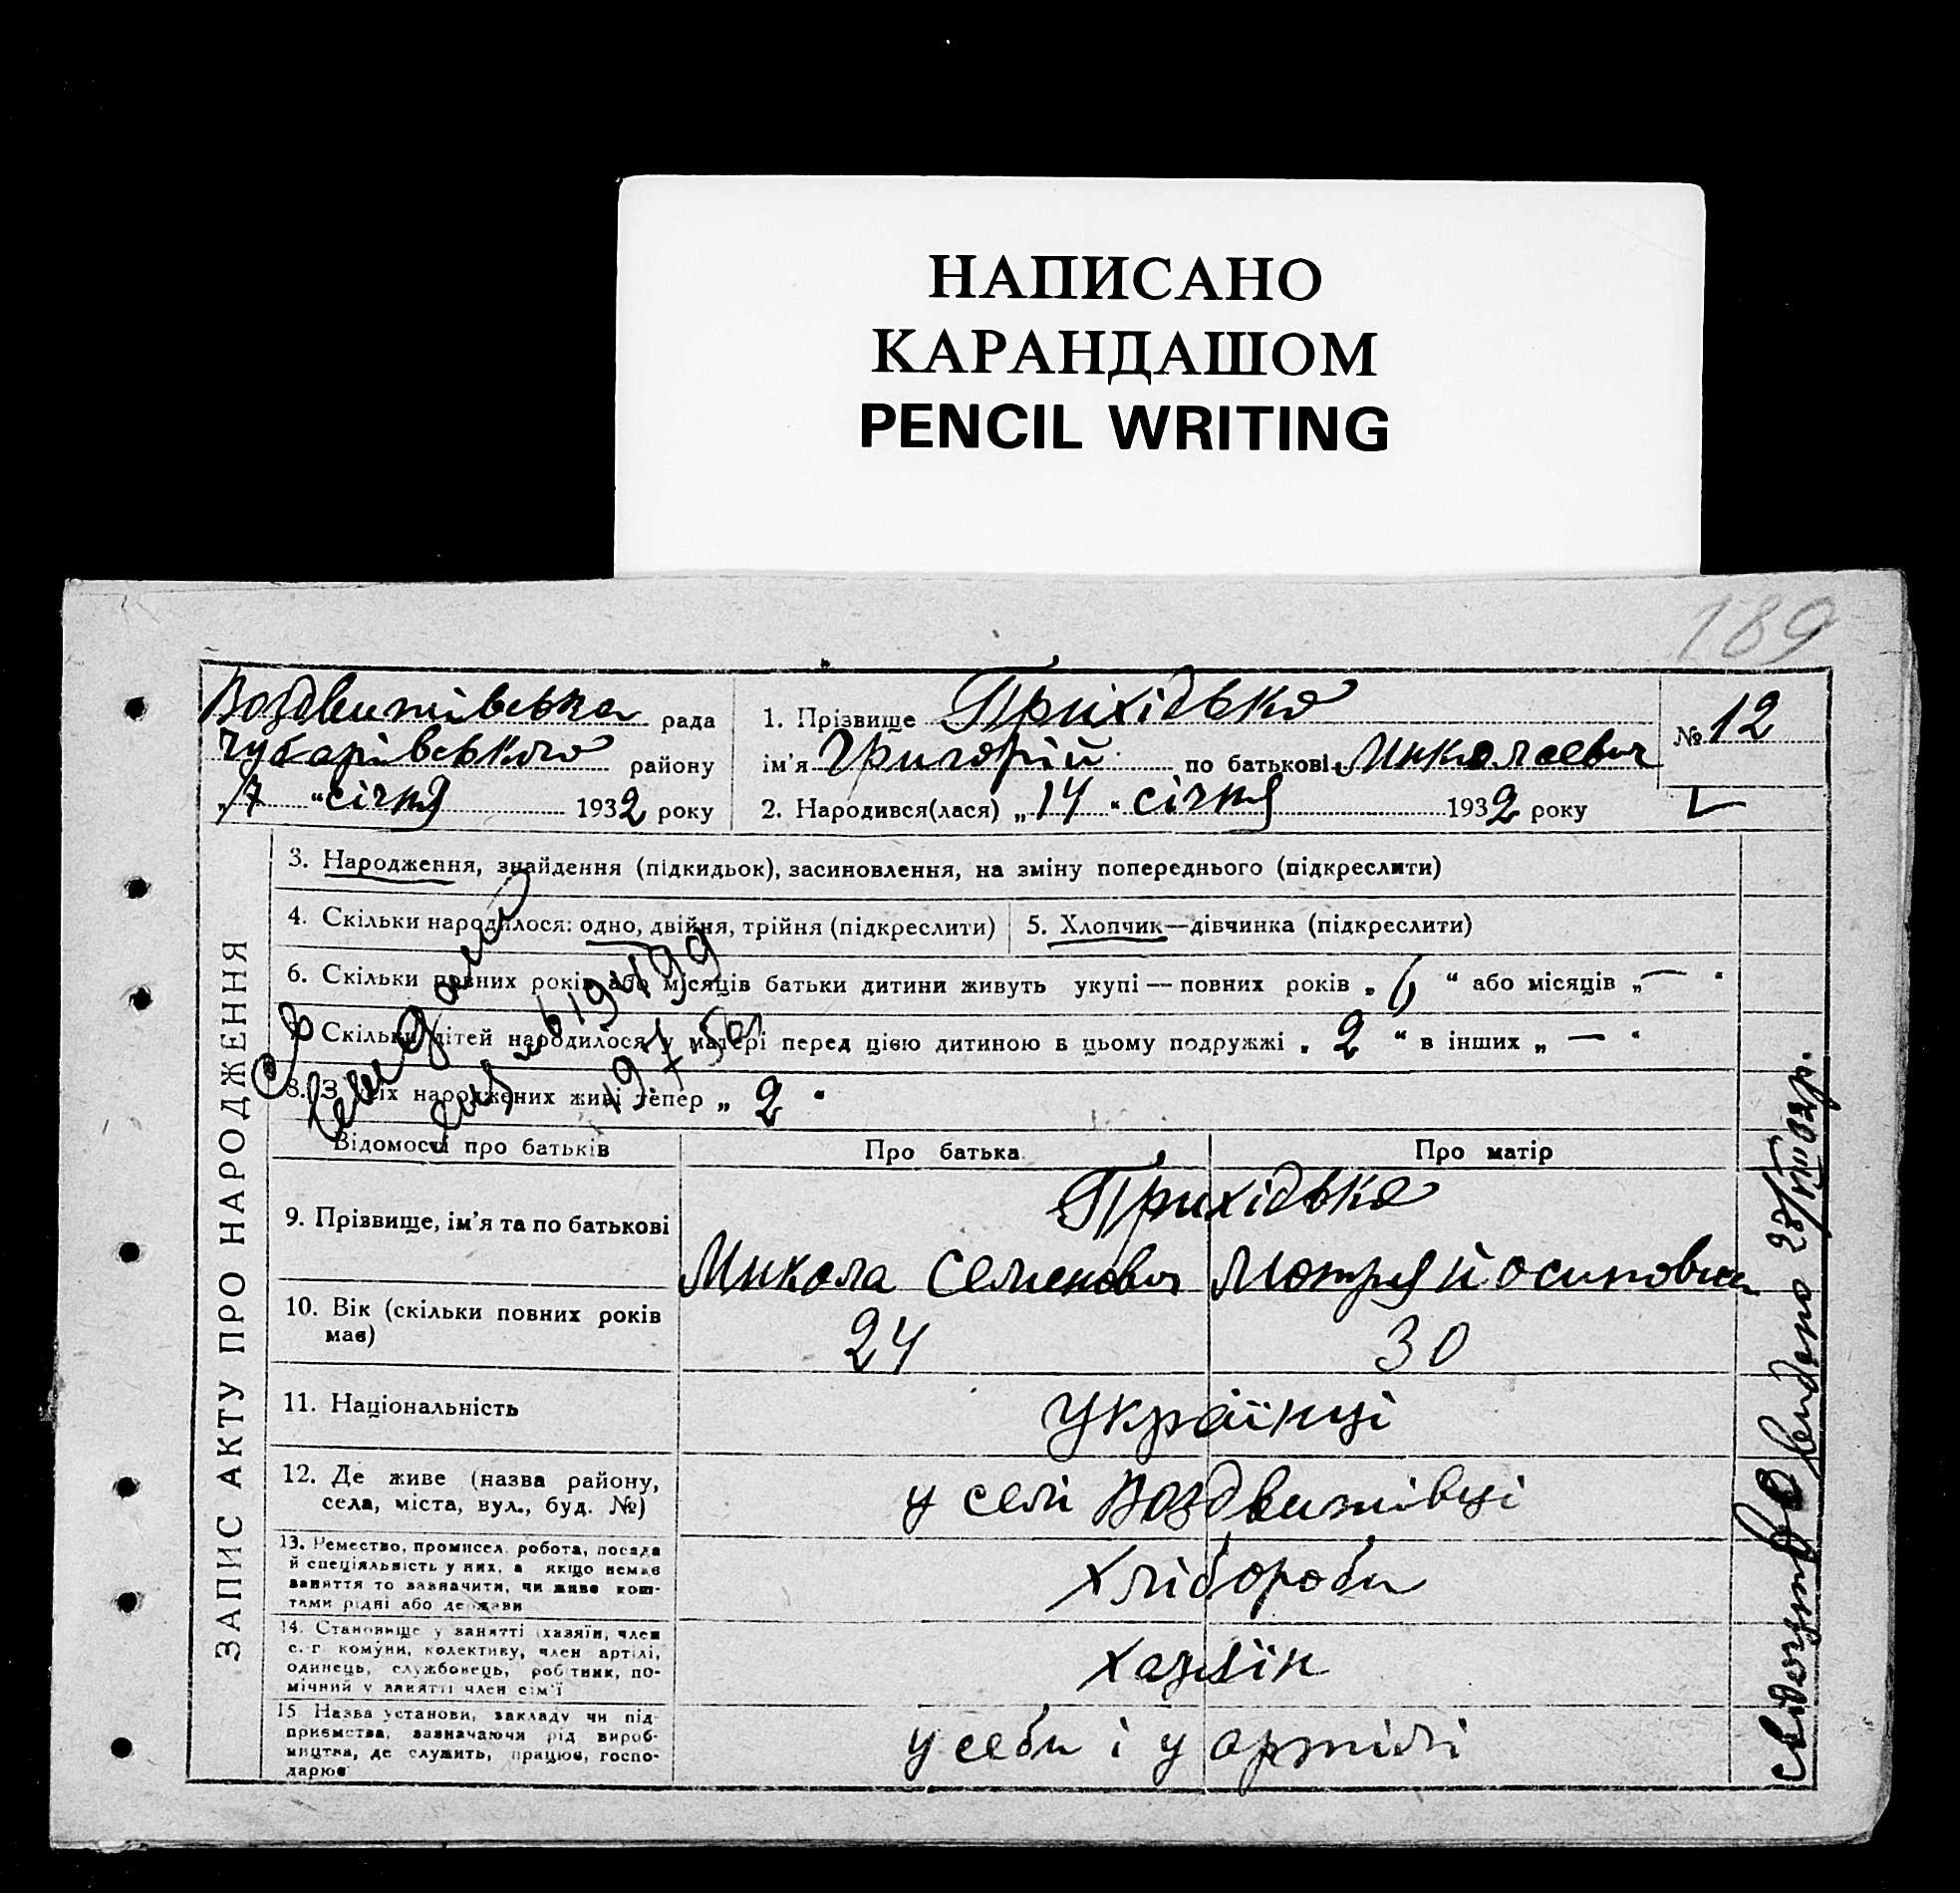 НАПИСАНО
КАРАНДАШОМ
PENCIL WRITING
189
Воздвижівська рада
Чубарівського району
„17“ січня 1932 року
1. Прізвище Прихідько
ім'я Григорій по батькові Миколаевич
2. Народився(лася) „14“ січня 1932 року
№ 12
ЗАПИС АКТУ ПРО НАРОДЖЕННЯ
3. Народження, знайдення (підкидьок), засиновлення, на зміну попереднього (підкреслити)
4. Скільки народилося: одно, двійня, трійня (підкреслити)
5. Хлопчик—дівчинка (підкреслити)
6. Скільки повних років або місяців батьки дитини живуть укупі — повних років „6“ або місяців „—“
Скільки дітей народилося у матері перед цією дитиною в цьому подружжі „2“ в інших „—“
8. З них народжених живі тепер „2“
Відомості про батьків
Про батька
Про матір
9. Прізвище, ім'я та по батькові
Прихідько
Микола Семенович
Мотря Йосиповна
10. Вік (скільки повних років має)
24
30
11. Національність
Українці
12. Де живе (назва району,
села, міста, вул., буд. №)
у селі Воздвижівці
13. Ремество, промисел, робота, посада
й спеціяльність у них, а якщо немає
заняття то зазначити, чи живе кош-
тами рідні або держави
Хлібороби
14. Становище у занятті (хазяїн, член
с.-г. комуни, колективу, член артілі,
одинець, службовець, робітник, по-
мічний у занятті член сім'ї
Хазяїн
15 Назва установи, закладу чи під-
приємства, зазначаючи рід вироб-
ництва, де служить, працює, госпо-
дарює
у себи і у артілі
видано